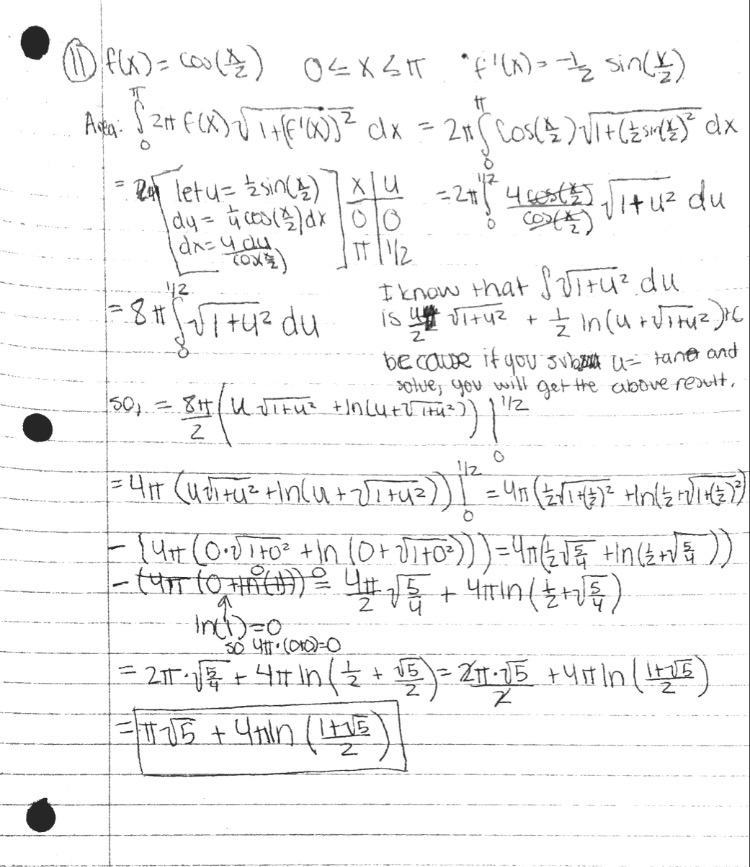 ⑪ f(x) = cos(x/2)    0 ≤ x ≤ π    f'(x) = -1/2 sin(x/2)
Area: ∫₀^π 2π f(x) √(1+(f'(x))²) dx = 2π ∫₀^π cos(x/2) √(1+(1/2 sin(x/2))²) dx
= 2π [ let u = 1/2 sin(x/2)   x | u   = 2π ∫₀^1/2 4cos(x/2)/cos(x/2) √(1+u²) du
du = 1/4 cos(x/2) dx   0 | 0
dx = 4 du/cos(x/2) ]   π | 1/2
= 8π ∫₀^1/2 √(1+u²) du    I know that ∫√(1+u²) du
is u/2 √(1+u²) + 1/2 ln(u+√(1+u²))+C
because if you sub u = tanθ and
solve, you will get the above result.
so, = 8π/2 (u√(1+u²) + ln(u+√(1+u²))) |₀^1/2
= 4π (u√(1+u²) + ln(u+√(1+u²))) |₀^1/2 = 4π(1/2√(1+(1/2)²) + ln(1/2+√(1+(1/2)²)
- (4π (0·√(1+0²) + ln(0+√(1+0²)))) = 4π(1/2√(5/4) + ln(1/2+√(5/4)))
- (4π (0+ln(1))) 0 = 4π/2 √(5/4) + 4π ln(1/2+√(5/4))
ln(1)=0
so 4π·(0+0)=0
= 2π·√(5/4) + 4π ln(1/2 + √5/2) = 2π·√5/2 + 4π ln((1+√5)/2)
= π√5 + 4π ln((1+√5)/2)